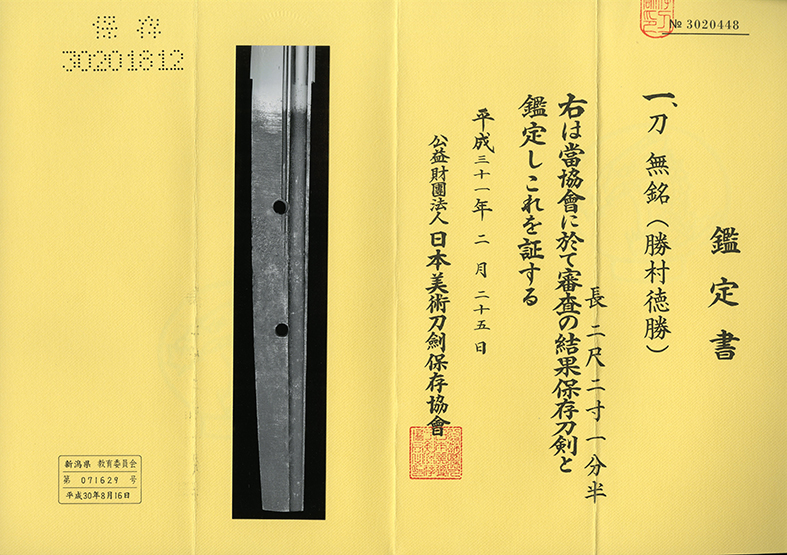 № 3020448
鑑定書
一、刀 無銘(勝村徳勝)
長 二尺二寸一分半
右は當協會に於て審査の結果保存刀剣と
鑑定しこれを証する
平成三十一年二月二十五日
公益財團法人 日本美術刀劍保存協會
保存
30201812
新潟県 教育委員会
第 071629 号
平成30年8月16日